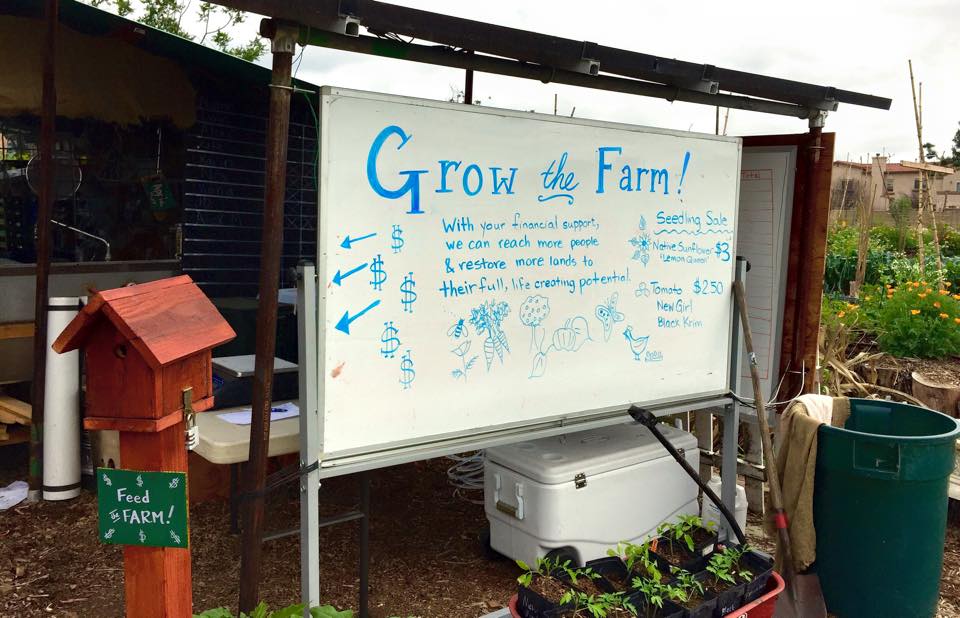 Grow the Farm!
With your financial support,
we can reach more people
& restore more lands to
their full, life creating potential.
$
$
$
$
$
Seedling Sale
Native Sunflower $3
"Lemon Queen"
Tomato $2.50
New Girl
Black Krim
Total
Feed
the FARM!